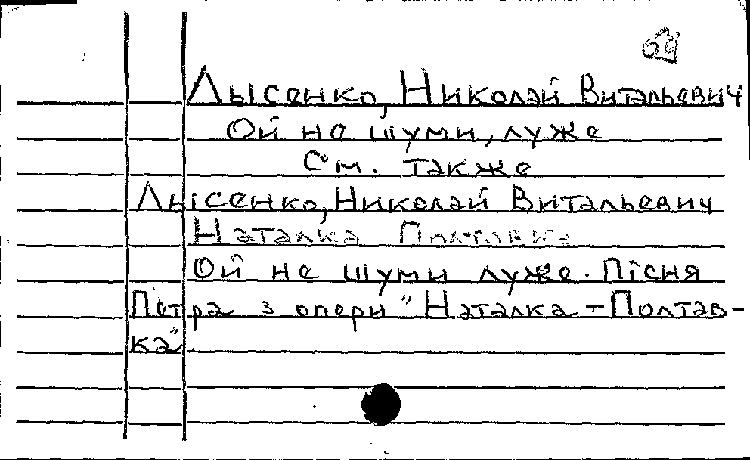 Лысенко, Николай Витальевич
Ой не шуми, луже
См. также
Лысенко, Николай Витальевич
Наталка Полтавка
Ой не шуми луже. Пісня
Петра з опери "Наталка-Полтав-
ка"